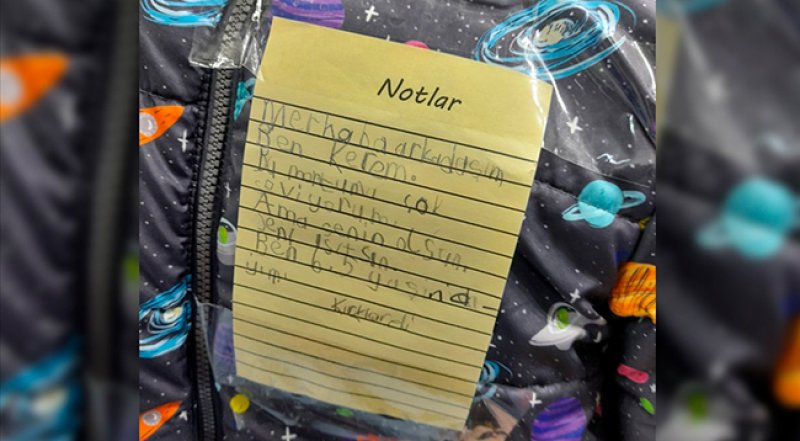 Notlar
Merhaba arkadaşım
Ben Kerem.
Bu montumu çok
seviyorum.
Ama senin olsun.
Seni ısıtsın.
Ben 6,5 yaşında-
yım.
Kırklareli